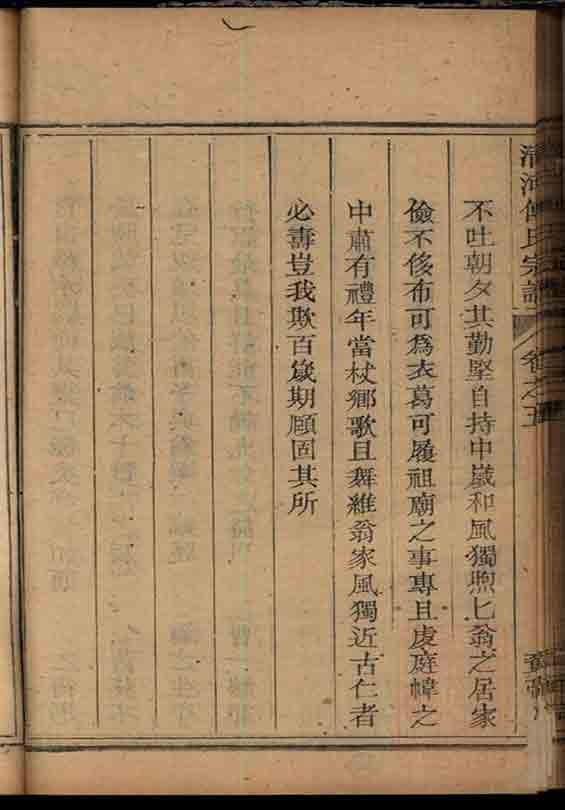 清河傅氏宗譜 卷之五
不吐朝夕其勤堅自持中歲和風獨煦匕翁之居家
儉不侈布可為衣葛可履祖廟之事專且虔庭幃之
中肅有禮年當杖鄉歌且舞維翁家風獨近古仁者
必壽豈我欺百歲期頤固其所